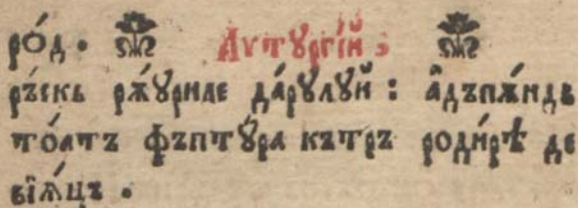 ро́д. Лѵтꙋргі́й;
ръ́скь рѫ́ꙋриле да́рꙋлꙋй: а҆дъпѫ́нд
то́атъ фъптꙋ́ра кътръ роди́рѣ де
вїѧ́цъ.